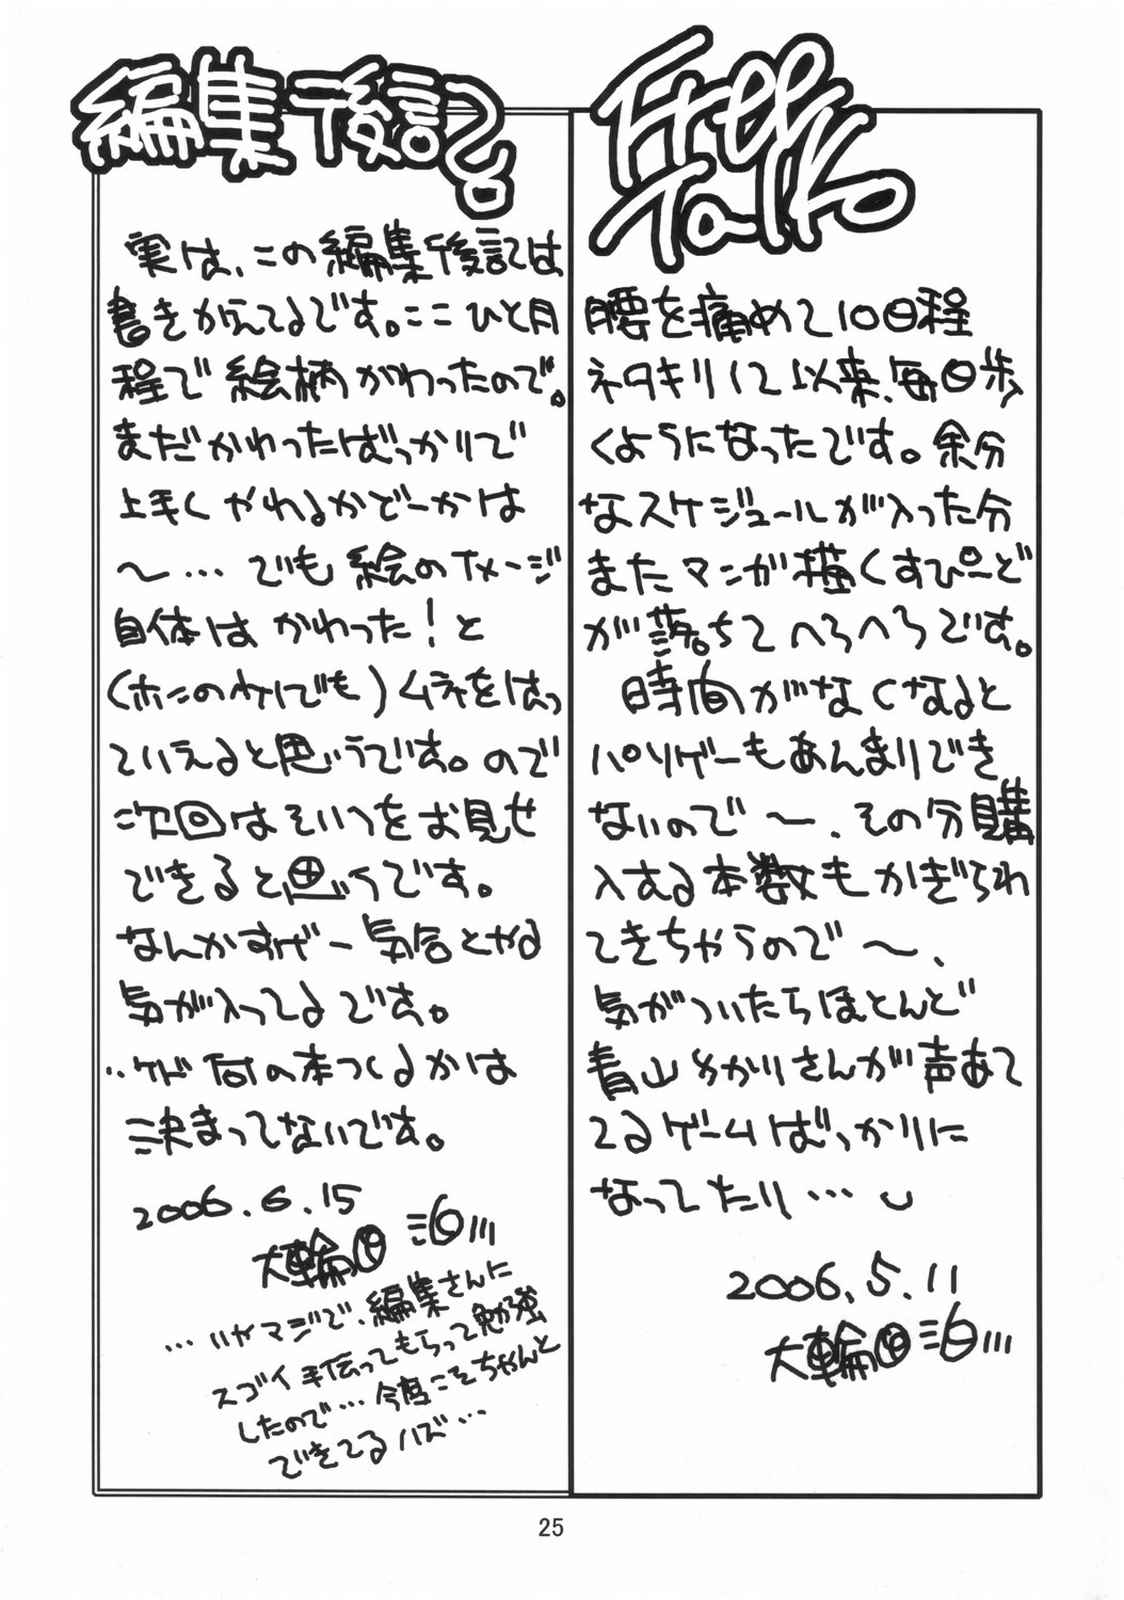 編集後記。
実は、この編集後記は
書きかえてるです。ここひと月
程で絵柄がかわったので。
まだかわったばっかりで
上手くやれるかどーかは
〜…でも絵のイメージ
自体はかわった！と
(ホンのケドでも)ムネをはっ
ていえると思うです。ので
次回はそいつをお見せ
できると思うです。
なんかすげー気合とやる
気が入ってるです。
‥ケド何の本つくるかは
決まってないです。
2006.6.15
大輪
…いやマジで、編集さんに
スゴイ手伝ってもらって勉強
したので…今度こそちゃんと
できてるハズ…
Free
Talk。
腰を痛めて10日程
ネタキリして以来、毎日歩
くようになったです。余分
なスケジュールが入った分
またマンガ描くすぴーど
が落ちてへろへろです。
時間がなくなると
パソゲーもあんまりでき
ないので〜、その分購
入する本数もかぎられ
てきちゃうので〜、
気がついたらほとんど
青山ゆかりさんが声あて
てるゲームばっかりに
なってたり…
2006.5.11
大輪
25